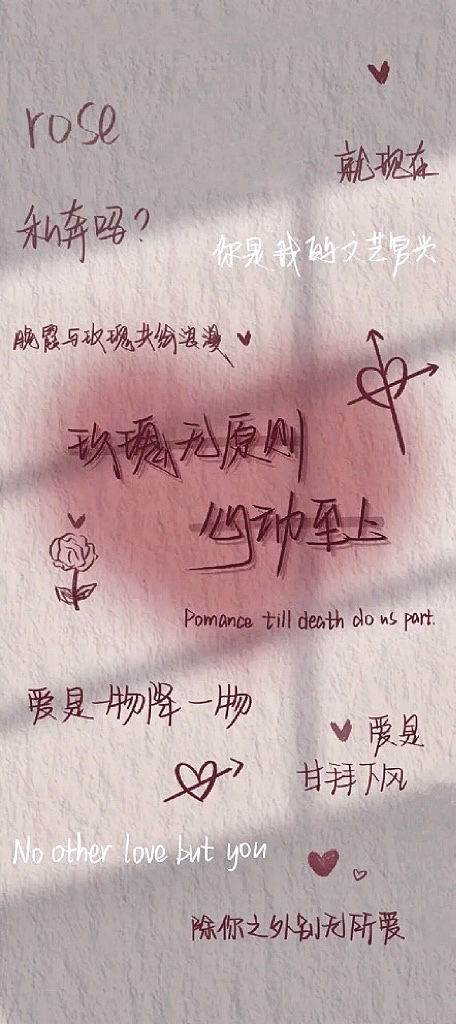 rose
就现在
私奔吗？
你是我的文艺复兴
晚霞与玫瑰共纷浪漫
玫瑰无原则
心动至上
Pomance till death do us part.
爱是一物降一物
爱是
甘拜下风
No other love but you
除你之外别无所爱